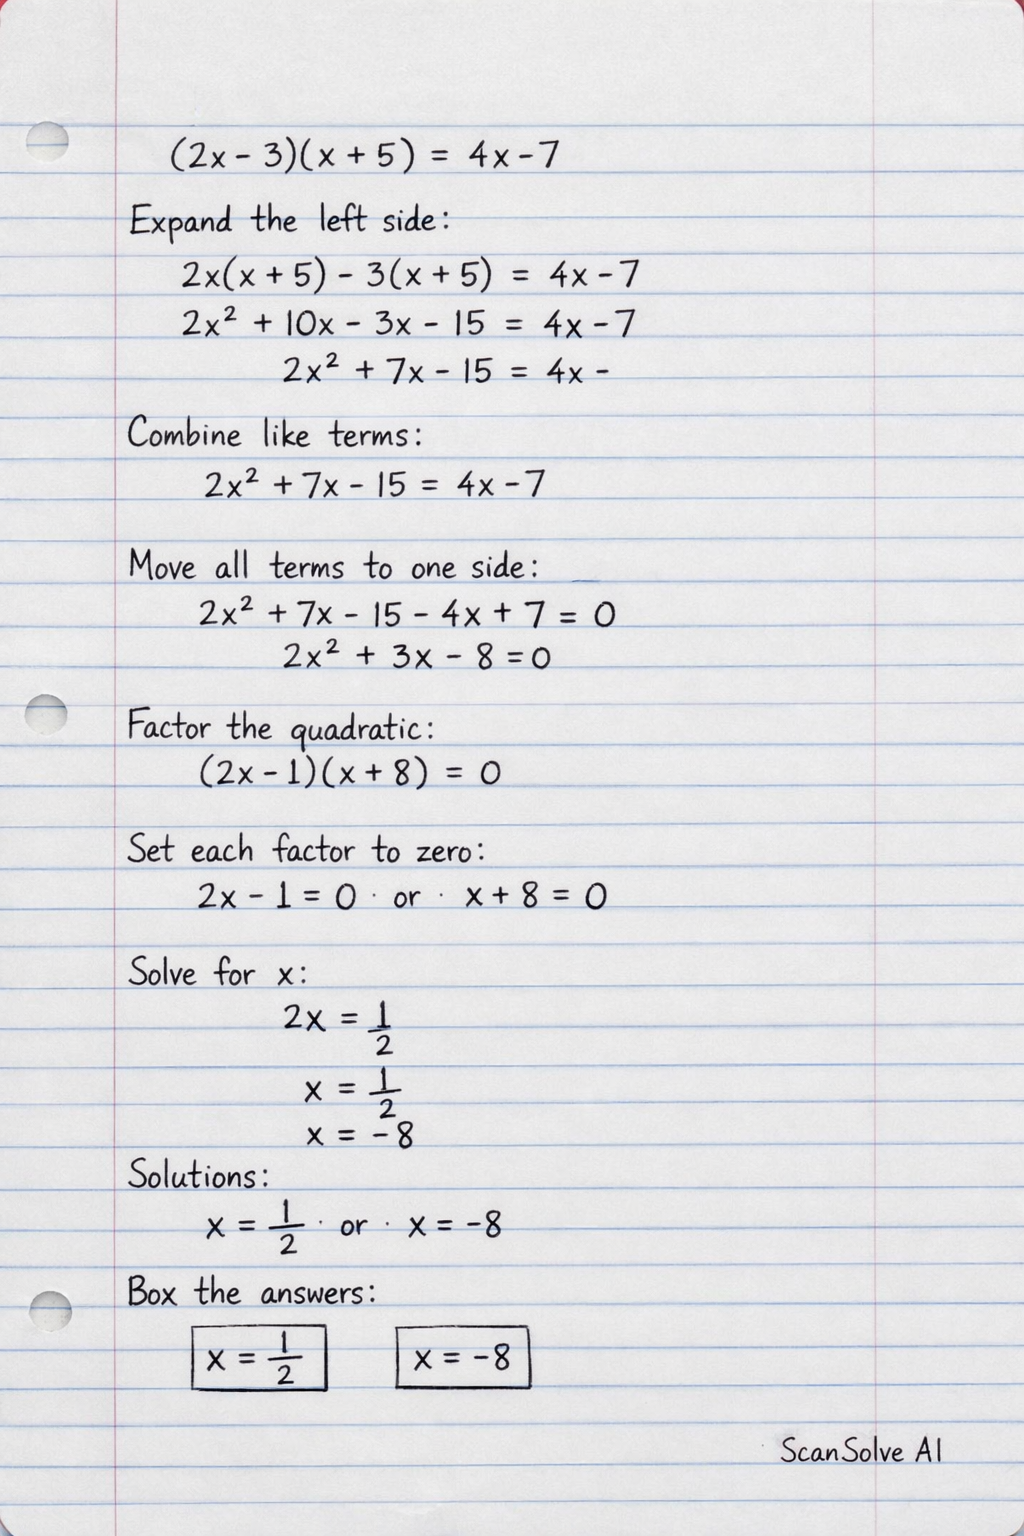 (2x - 3)(x + 5) = 4x - 7
Expand the left side:
2x(x + 5) - 3(x + 5) = 4x - 7
2x² + 10x - 3x - 15 = 4x - 7
2x² + 7x - 15 = 4x -
Combine like terms:
2x² + 7x - 15 = 4x - 7
Move all terms to one side:
2x² + 7x - 15 - 4x + 7 = 0
2x² + 3x - 8 = 0
Factor the quadratic:
(2x - 1)(x + 8) = 0
Set each factor to zero:
2x - 1 = 0 · or · x + 8 = 0
Solve for x:
2x = 1/2
x = 1/2
x = -8
Solutions:
x = 1/2 · or · x = -8
Box the answers:
x = 1/2 x = -8
ScanSolve AI